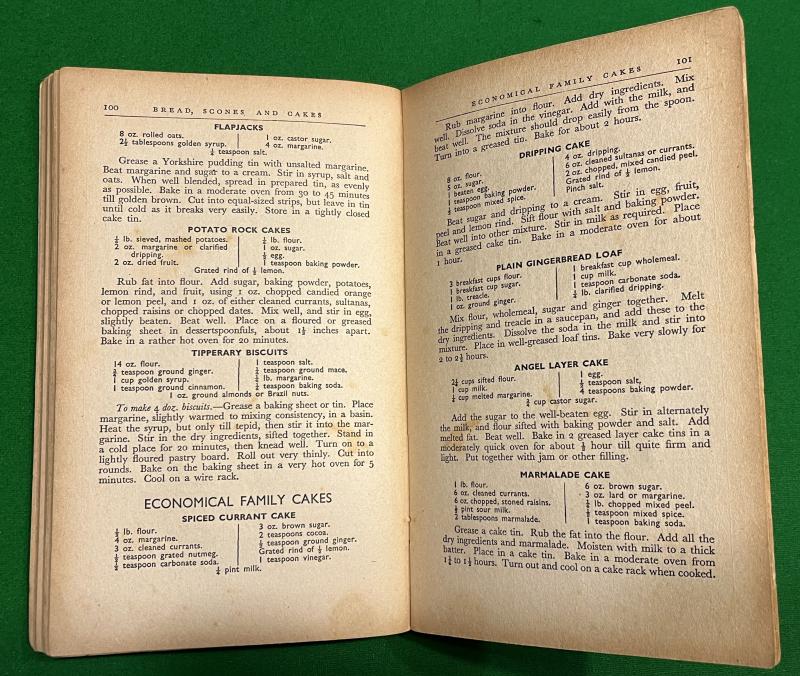 100 BREAD, SCONES AND CAKES
FLAPJACKS
8 oz. rolled oats.
2½ tablespoons golden syrup.
1 oz. castor sugar.
4 oz. margarine.
teaspoon salt.
Grease a Yorkshire pudding tin with unsalted margarine.
Beat margarine and sugar to a cream. Stir in syrup, salt and
oats. When well blended, spread in prepared tin, as evenly
as possible. Bake in a moderate oven from 30 to 45 minutes
till golden brown. Cut into equal-sized strips, but leave in tin
until cold as it breaks very easily. Store in a tightly closed
cake tin.
POTATO ROCK CAKES
lb. sieved, mashed potatoes.
2 oz. margarine or clarified
dripping.
2 oz. dried fruit.
lb. flour.
1 oz. sugar.
egg.
1 teaspoon baking powder.
Grated rind of ½ lemon.
Rub fat into flour. Add sugar, baking powder, potatoes,
lemon rind, and fruit, using 1 oz. chopped candied orange
or lemon peel, and 1 oz. of either cleaned currants, sultanas,
chopped raisins or chopped dates. Mix well, and stir in egg,
slightly beaten. Beat well. Place on a floured or greased
baking sheet in dessertspoonfuls, about 1½ inches apart.
Bake in a rather hot oven for 20 minutes.
TIPPERARY BISCUITS
14 oz. flour.
teaspoon ground ginger.
1 cup golden syrup.
1 teaspoon ground cinnamon.
1 teaspoon salt.
teaspoon ground mace.
lb. margarine.
teaspoon baking soda.
1 oz. ground almonds or Brazil nuts.
To make 4 doz. biscuits.—Grease a baking sheet or tin. Place
margarine, slightly warmed to mixing consistency, in a basin.
Heat the syrup, but only till tepid, then stir it into the mar-
garine. Stir in the dry ingredients, sifted together. Stand in
a cold place for 20 minutes, then knead well. Turn on to a
lightly floured pastry board. Roll out very thinly. Cut into
rounds. Bake on the baking sheet in a very hot oven for 5
minutes. Cool on a wire rack.
ECONOMICAL FAMILY CAKES
SPICED CURRANT CAKE
lb. flour.
4 oz. margarine.
3 oz. cleaned currants.
teaspoon grated nutmeg.
teaspoon carbonate soda.
3 oz. brown sugar.
2 teaspoons cocoa.
teaspoon ground ginger.
Grated rind of ½ lemon.
1 teaspoon vinegar.
pint milk.
ECONOMICAL FAMILY CAKES 101
Rub margarine into flour. Add dry ingredients. Mix
well. Dissolve soda in the vinegar. Add with the milk, and
beat well. The mixture should drop easily from the spoon.
Turn into a greased tin. Bake for about 2 hours.
DRIPPING CAKE
8 oz. flour.
5 oz. sugar.
1 beaten egg.
1 teaspoon baking powder.
teaspoon mixed spice.
4 oz. dripping.
6 oz. cleaned sultanas or currants.
2 oz. chopped, mixed candied peel.
Grated rind of ½ lemon.
Pinch salt.
Beat sugar and dripping to a cream. Stir in egg, fruit,
peel and lemon rind. Sift flour with salt and baking powder.
Beat well into other mixture. Stir in milk as required. Place
in a greased cake tin. Bake in a moderate oven for about
1 hour.
PLAIN GINGERBREAD LOAF
3 breakfast cups flour.
1 breakfast cup sugar.
1 lb. treacle.
1 oz. ground ginger.
1 breakfast cup wholemeal.
1 cup milk.
1 teaspoon carbonate soda.
lb. clarified dripping.
Mix flour, wholemeal, sugar and ginger together. Melt
the dripping and treacle in a saucepan, and add these to the
dry ingredients. Dissolve the soda in the milk and stir into
mixture. Place in well-greased loaf tins. Bake very slowly for
2 to 2½ hours.
ANGEL LAYER CAKE
cups sifted flour.
1 cup milk.
cup melted margarine.
1 egg.
teaspoon salt,
4 teaspoons baking powder.
cup castor sugar.
Add the sugar to the well-beaten egg. Stir in alternately
the milk, and flour sifted with baking powder and salt. Add
melted fat. Beat well. Bake in 2 greased layer cake tins in a
moderately quick oven for about ½ hour till quite firm and
light. Put together with jam or other filling.
MARMALADE CAKE
1 lb. flour.
6 oz. cleaned currants.
6 oz. chopped, stoned raisins.
pint sour milk.
2 tablespoons marmalade.
6 oz. brown sugar.
3 oz. lard or margarine.
lb. chopped mixed peel.
teaspoon mixed spice.
1 teaspoon baking soda.
Grease a cake tin. Rub the fat into the flour. Add all the
dry ingredients and marmalade. Moisten with milk to a thick
batter. Place in a cake tin. Bake in a moderate oven from
to 1½ hours. Turn out and cool on a cake rack when cooked.